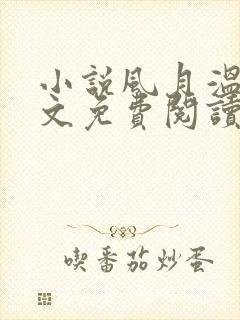 小說風月溫
文免費閱讀
喫番茄炒蛋